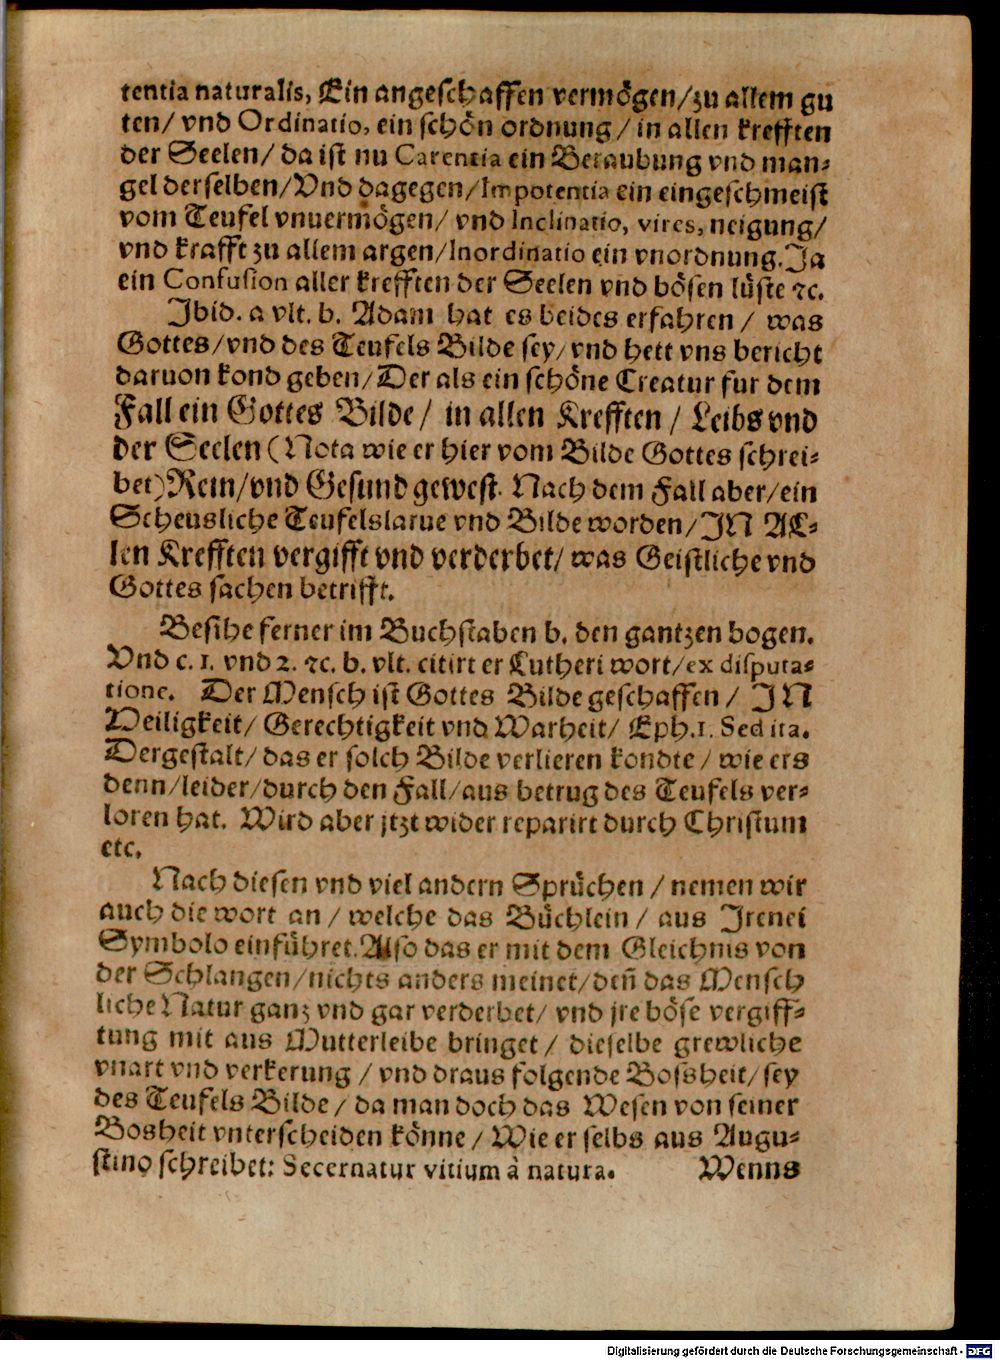 tentia naturalis, Ein angeschaffen vermögen/zu allem gu
ten/ vnd Ordinatio, ein schön ordnung/ in allen krefften
der Seelen/ da ist nu Carentia ein Beraubung vnd man-
gel derselben/Vnd dagegen/Impotentia ein eingeschmeist
vom Teufel vnuermögen/ vnd Inclinatio, vires, neigung/
vnd krafft zu allem argen/Inordinatio ein vnordnung. Ja
ein Confusion aller krefften der Seelen vnd bösen lüste ꝛc.
Ibid. a vlt. b. Adam hat es beides erfahren / was
Gottes/vnd des Teufels Bilde sey/ vnd hett vns bericht
daruon kond geben/ Der als ein schöne Creatur fur dem
Fall ein Gottes Bilde/ in allen Krefften / Leibs vnd
der Seelen (Nota wie er hier vom Bilde Gottes schrei-
bet) Rein/vnd Gesund gewest. Nach dem Fall aber/ein
Scheusliche Teufelslarue vnd Bilde worden/ IN AL-
len Krefften vergifft vnd verderbet/ was Geistliche vnd
Gottes sachen betrifft.
Besihe ferner im Buchstaben b. den gantzen bogen.
Vnd c. 1. vnd 2. ꝛc. b. vlt. citirt er Lutheri wort/ex disputa-
tione. Der Mensch ist Gottes Bilde geschaffen / IN
Heiligkeit/ Gerechtigkeit vnd Warheit/ Eph.1. Sed ita.
Dergestalt/ das er solch Bilde verlieren kondte / wie ers
denn/leider/durch den Fall/aus betrug des Teufels ver-
loren hat. Wird aber jtzt wider reparirt durch Christum
etc.
Nach diesen vnd viel andern Sprüchen / nemen wir
auch die wort an / welche das Büchlein / aus Irenei
Symbolo einführet. Also das er mit dem Gleichnis von
der Schlangen/nichts anders meinet/den̄ das Mensch
liche Natur ganz vnd gar verderbet/ vnd jre böse vergiff-
tung mit aus Mutterleibe bringet / dieselbe grewliche
vnart vnd verkerung / vnd draus folgende Bossheit/ sey
des Teufels Bilde / da man doch das Wesen von seiner
Bosheit vnterscheiden könne / Wie er selbs aus Augu-
stino schreibet: Secernatur vitium à natura. Wenns
Digitalisierung gefördert durch die Deutsche Forschungsgemeinschaft - DFG